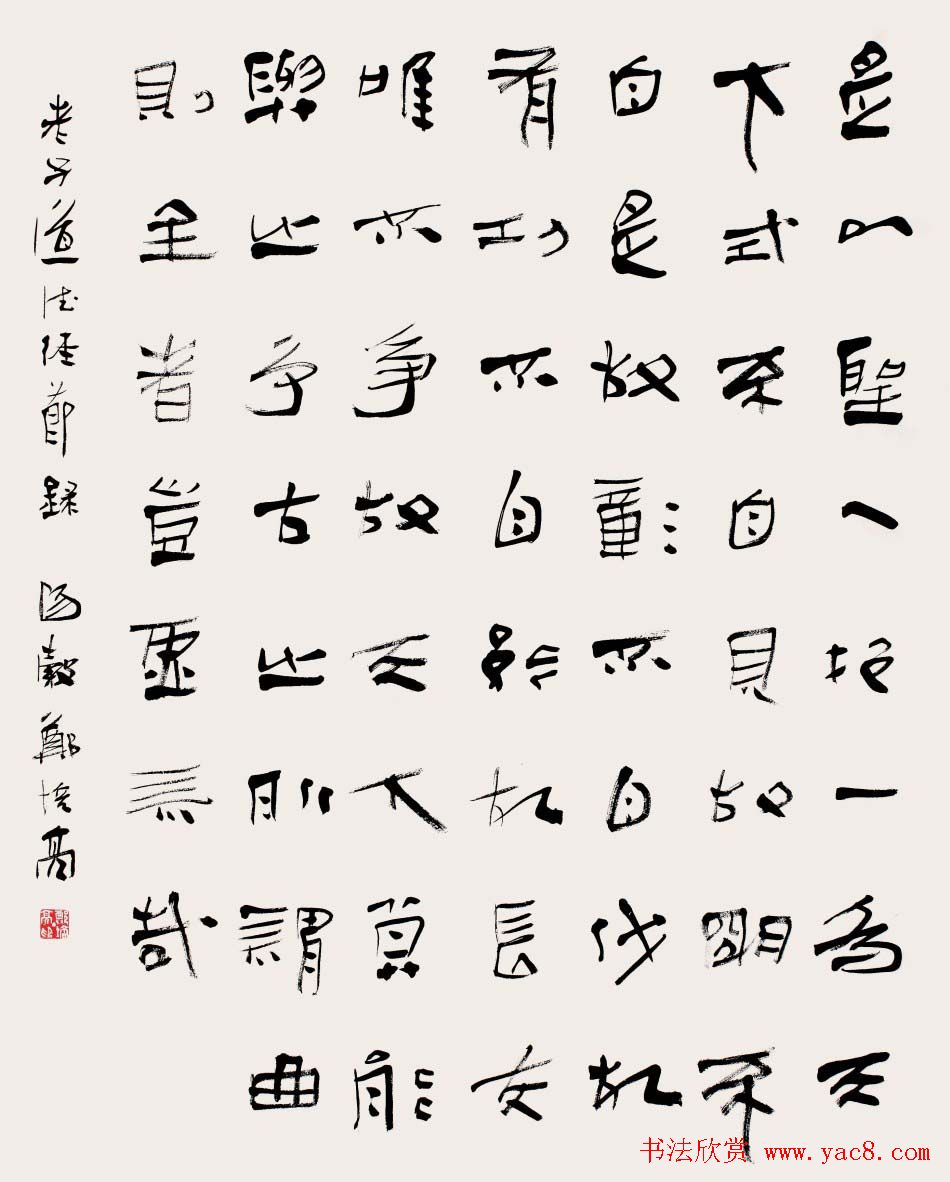 是以聖人抱一為天
下式不自見故明不
自是故彰不自伐故
有功不自矜故長夫
唯不爭故天下莫能
與之爭古之所謂曲
則全者豈虛言哉
老子道德經節錄 鄭培
书法欣赏 www.yac8.com